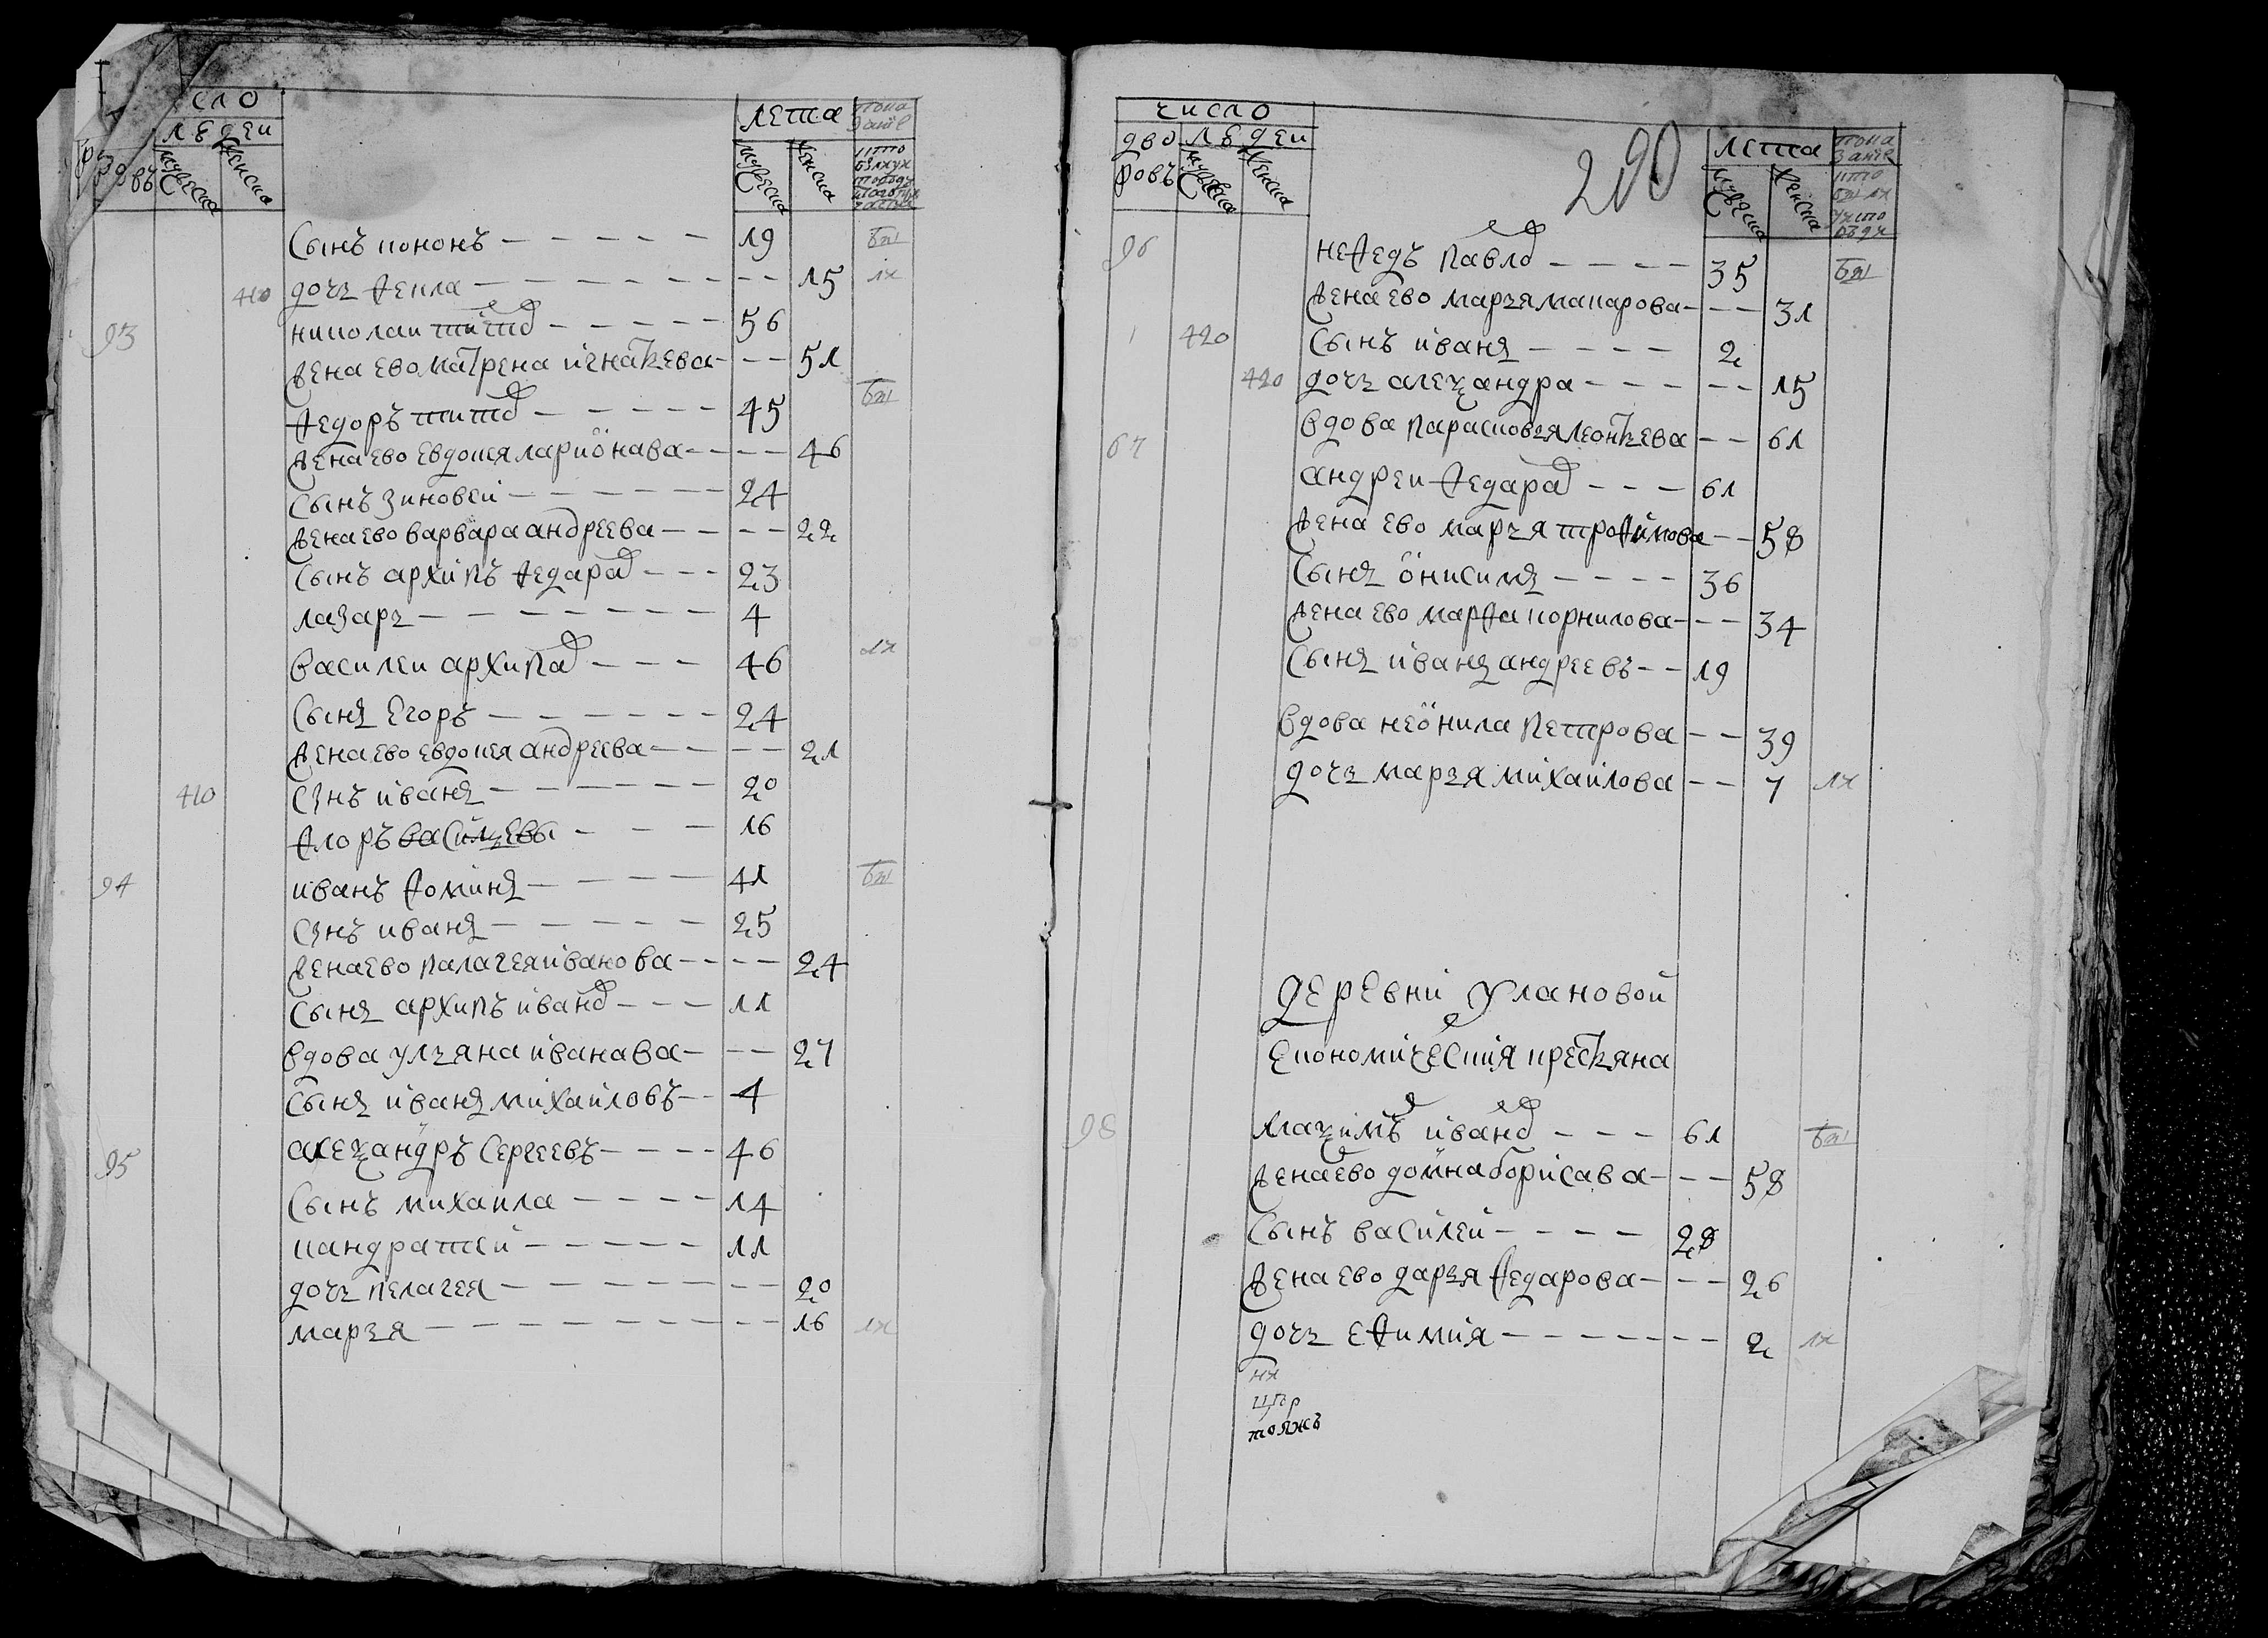 сло
людеи
мужеска женска
лета
мужеска женска
пока
заніе
кто
былъ у
Сынъ кононъ – – – – – 19 бы
410 дочь Фекла – – – – – 15 лх
93 николаи титов – – – – 56
жена ево матрена игнатьева – – 51
Федоръ титов – – – – 45 бы
жена ево евдокея ларионава – – – 46
Сынъ зиновеи – – – – – 24
жена ево варвара андреева – – – – 22
Сынъ архипъ Федаров – – – 23
лазарь – – – – – – – 4
василеи архипов – – – 46 лх
Сынъ Егоръ – – – – – – 24
жена ево евдокея андреева – – – – 21
410 Сынъ иванъ – – – – – – 20
Флоръ василевы – – – 16
94 иванъ Фоминъ – – – – – 41 бы
Сынъ иванъ – – – – – – 25
жена ево палагея иванова – – – – 24
Сынъ архипъ иванов – – – 11
вдова ульяна иванава – – – 27
Сынъ иванъ михаиловъ – – 4
95 александръ Сергеевъ – – – – 46
Сынъ михаила – – – – 14
кандратеи – – – – – 11
дочь пелагея – – – – – – – – 20
марья – – – – – – – – – – 16 лх
число
дво людеи
ровъ мужеска женска
290
лета
мужеска женска
пока
заніе
96 неФедъ павлов – – – – 35 бы
жена ево марья макарова – – – 31
1 420 Сынъ иванъ – – – – 2
420 дочь александра – – – – – 15
67 вдова парасковья леонтьева – – 61
андреи Федаров – – – 61
жена ево марья троФимова – – 58
Сынъ онисимъ – – – – 36
жена ево марФа корнилова – – – 34
Сынъ иванъ андреевъ – – 19
вдова неонила петрова – – 39
дочь марья михаилова – – 7 лх
деревни улановой
економическия крестьяна
98 максимъ иванов – – – 61 бы
жена ево домна борисава – – – 58
Сынъ василеи – – – – 28
жена ево дарья Федарова – – – 26
дочь еФимия – – – – – – – 2 лх
нх
тояжъ